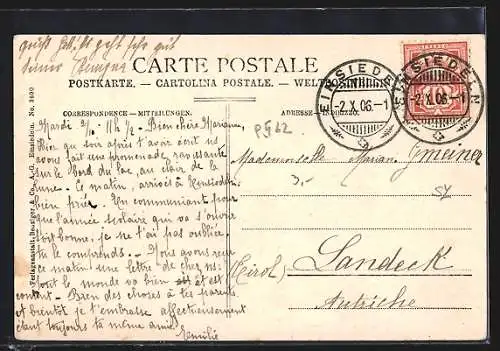 CARTE POSTALE
POSTKARTE. — CARTOLINA POSTALE. — WELTPOST
EINSIEDELN
-2.X.06.-1
EINSIEDELN
-2.X.06.-1
CORRESPONDENCE — MITTEILUNGEN.
ADRESSE —
Verlagsanstalt Benziger & Co. A.-G. Einsiedeln. No.
Mardi 2/10. 11h 1/2. Bien chère Mariane,
Bien qu'on après t'avoir écrit nous
avons fait une promenade ravissante
sur le bord du lac, au clair de la
lune. Ce matin, arrivés à Einsiedeln
bien prier. En communiant pour
que l'année scolaire qui va s'ouvrir
soit bonne, je ne t'ai pas oubliée
tu le comprends. Nous avons reçu
ce matin une lettre de chez ns:
tout le monde va bien et est
content. Bien des choses à tes parents
et bientôt je t'embrasse affectueusement
étant toujours ta même amie.
Emilie
P562
Mademoiselle Marian Gmeiner
3,-
Landeck
(Tirol)
Autriche